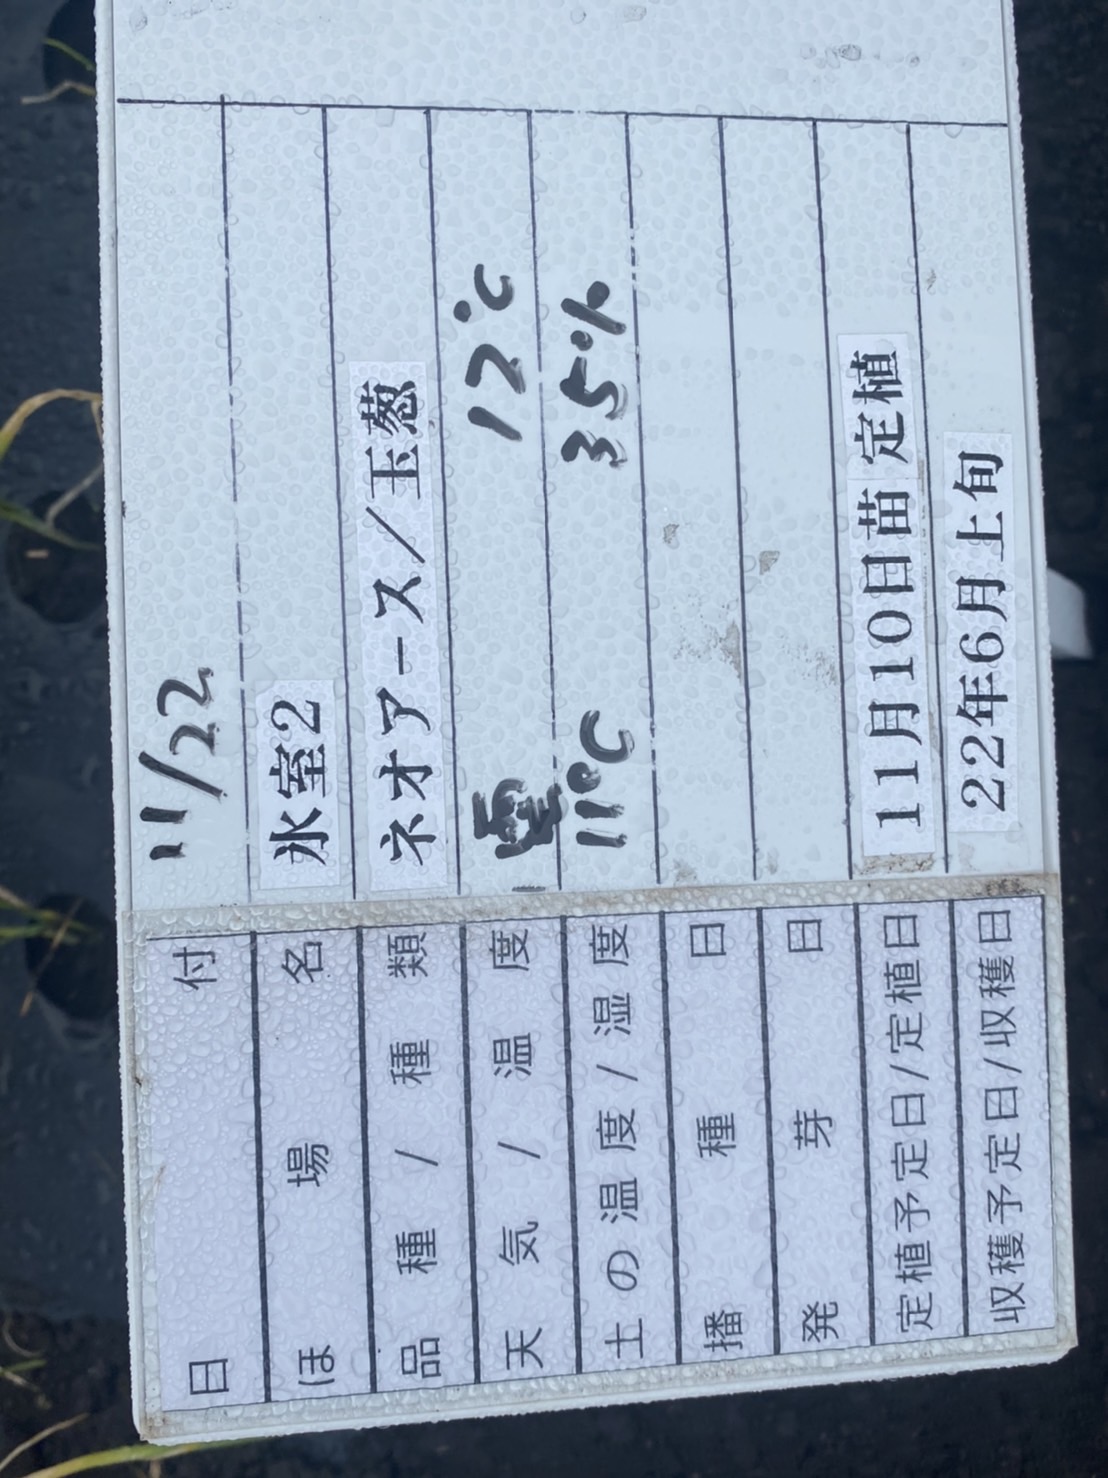 日付 11/22
ほ場名 氷室2
品種/種類 ネオアース/玉葱
天気/温度 曇 12℃
土の温度/湿度 11℃ 35%
播種日
発芽日
定植予定日/定植日 11月10日苗定植
収穫予定日/収穫日 22年6月上旬